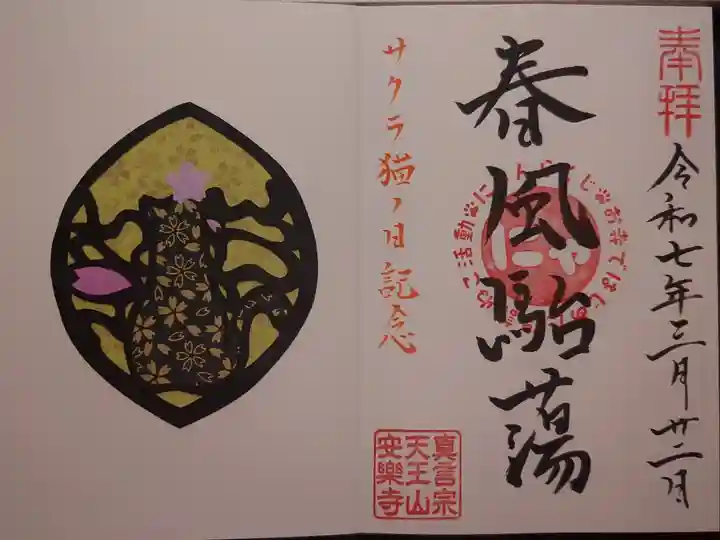 奉拝
令和七年三月廿二日
春風駘蕩
サクラ猫ノ日記念
真言宗
天王山
安樂寺